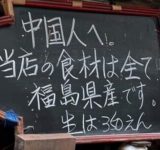 中国人へ。
当店の食材は全て
福島県産です。
生は350えん